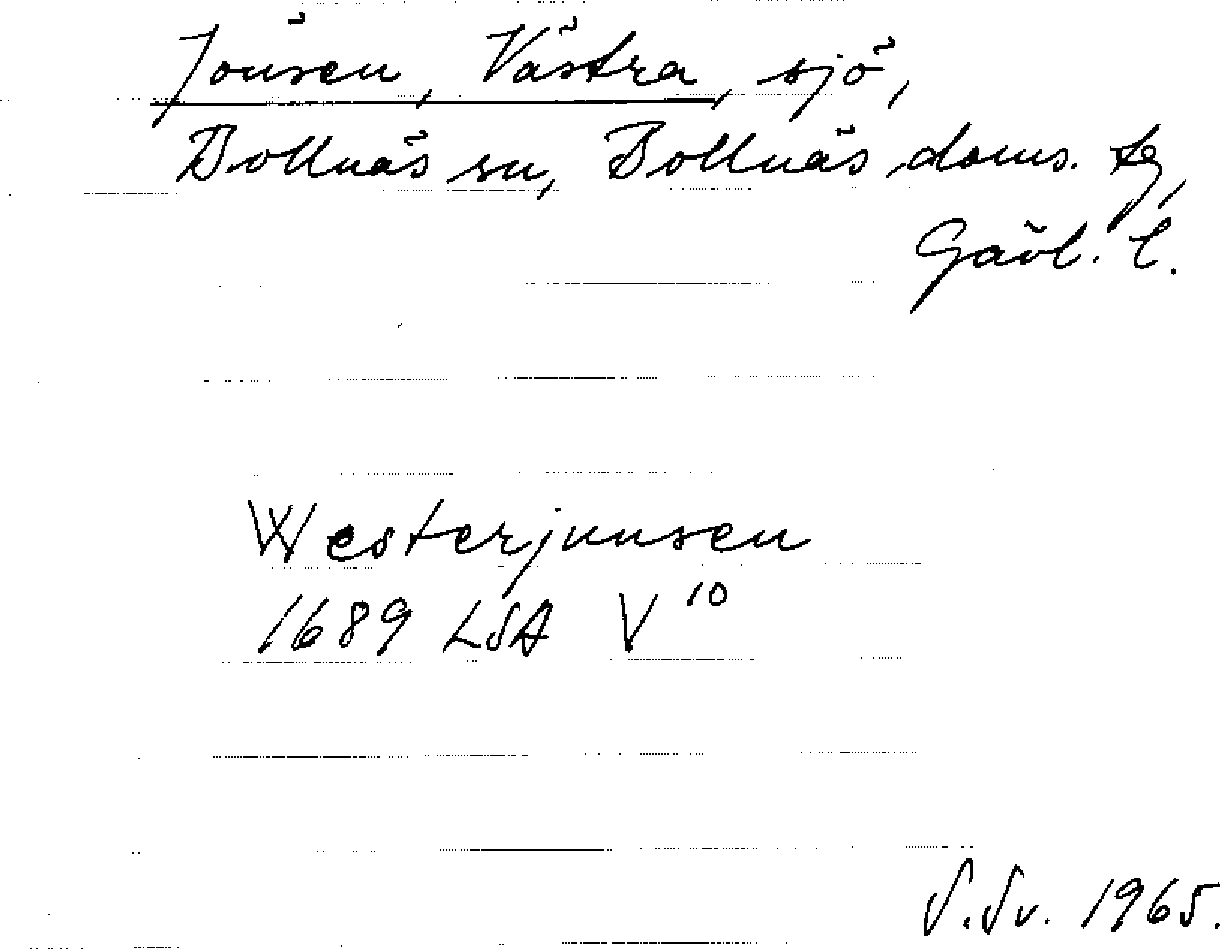 Jönsen, Västra, sjö,
Bollnäs sn, Bollnäs doms. tg,
Gävl. l.
Westerjunsen
1689 LSA V¹⁰
S.Sv. 1965.